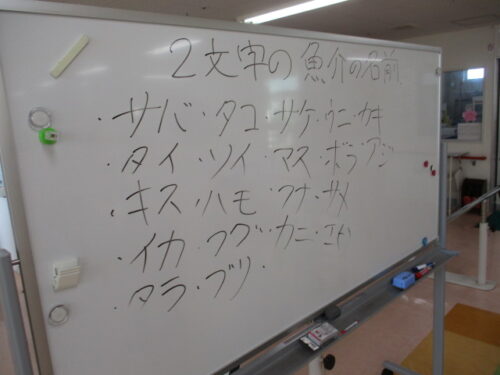 2文字の魚介の名前
・サバ・タコ・サケ・ウニ・カキ
・タイ・ソイ・マス・ボラ・アジ
・キス・ハモ・フナ・サメ
・イカ・フグ・カニ・エイ
・タラ・ブリ・